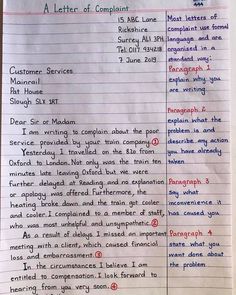 A Letter of Complaint
15 ABC Lane
Rickshire
Surrey AL1 3PH
Tel: 0117 934218
7 June 2019
Customer Services
Mainrail
Pat House
Slough SL1 1RT
Dear Sir or Madam
I am writing to complain about the poor
Service provided by your train company. 1
Yesterday, I travelled on the 8:20 from
Oxford to London. Not only was the train ten
minutes late leaving Oxford but we were
further delayed at Reading and no explanation
or apology was offered. Furthermore, the
heating broke down and the train got cooler
and cooler. I complained to a member of staff,
who was most unhelpful and unsympathetic. 2
As a result of delays I missed an important
meeting with a client, which caused financial
loss and embarrassment. 3
In the circumstances I believe I am
entitled to compensation. I look forward to
hearing from you very soon. 4
Most letters of
complaint use formal
language and are
organised in a
standard way:
Paragraph 1
explain why you
are writing
Paragraph 2
explain what the
problem is and
describe any action
you have already
taken
Paragraph 3
Say what
inconvenience it
has caused you
Paragraph 4
state what you
want done about
the problem